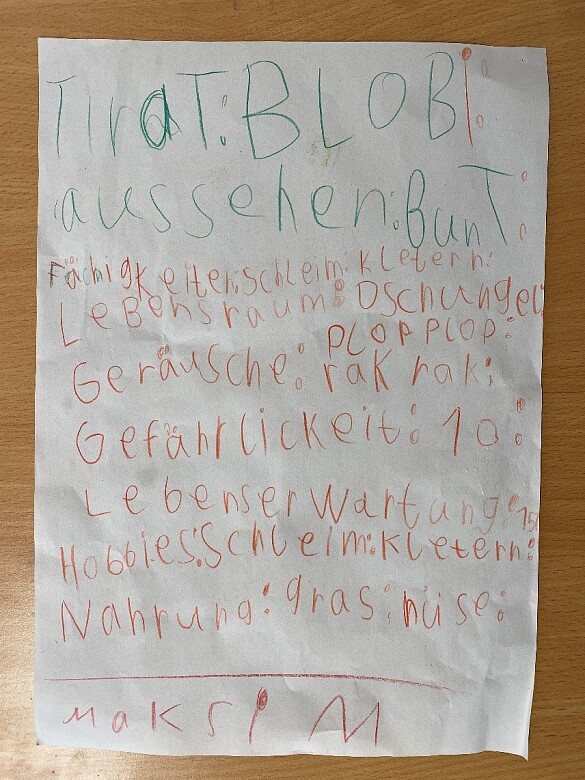 TiraT: BLOBi:
aussehen: BunT:
Fächigkeiten: schleim: kletern:
Lebensraum: Dschungel
PLOP PLOP:
Geräusche: rak rak:
Gefährlickeit: 10:
Lebenserwartung:
Hobbies: Schleim: kletern:
Nahrung: gras: nüse:
maksi M